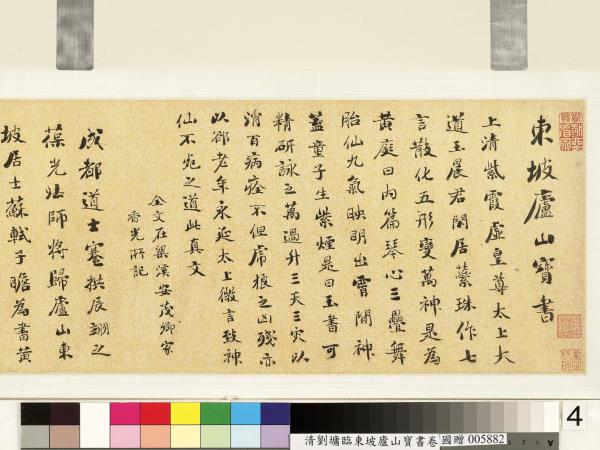 東坡廬山寶書
上清紫霞虛皇尊太上大
道玉晨君閑居蘂珠作七
言散化五形變萬神是為
黃庭曰內篇琴心三疊舞
胎仙九氣映明出霄間神
蓋童子生紫煙是曰玉書可
精研詠之萬過升三天三灾以
消百病痊不但虎狼之凶殘亦
以卻老年永延太上微言致神
仙不死之道此真文
全文在梁溪安茂卿家
香光所記
成都道士蹇拱辰翊之
葆光法師將歸廬山東
坡居士蘇軾子瞻為書黃
4
清劉墉臨東坡廬山寶書卷 國贈 005882